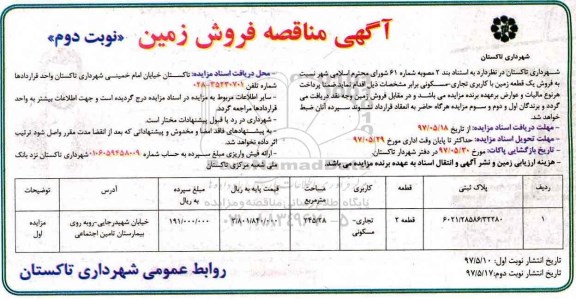 آگهی مناقصه فروش زمین «نوبت دوم»
شهرداری تاکستان
شهرداری تاکستان در نظر دارد به استناد بند ۲ مصوبه شماره ۶۱ شورای محترم اسلامی شهر نسبت
به فروش یک قطعه زمین با کاربری تجاری-مسکونی برابر مشخصات ذیل اقدام نماید ضمنا پرداخت
هرنوع مالیات و عوارض برعهده برنده مزایده می باشد و در مقابل فروش زمین وجه نقد دریافت می
گردد و برندگان اول و دوم و سوم مزایده هرگاه حاضر به انعقاد قرارداد نشوند سپرده آنان ضبط
خواهد شد.
- مهلت دریافت اسناد مزایده: از تاریخ ۹۷/۰۵/۱۸
- مهلت تحویل اسناد مزایده: حداکثر تا پایان وقت اداری مورخ ۹۷/۰۵/۲۹
- تاریخ بازگشایی پاکات: مورخ ۹۷/۰۵/۳۰ در دفتر شهردار تاکستان.
- هزینه ارزیابی زمین و نشر آگهی و انتقال اسناد به عهده برنده مزایده می باشد
- محل دریافت اسناد مزایده: تاکستان خیابان امام خمینی شهرداری تاکستان واحد قراردادها
شماره تلفن ۰۲۸-۳۵۲۳۰۷۰۱
- سایر اطلاعات مربوط به مزایده در اسناد مزایده درج گردیده است و جهت اطلاعات بیشتر به واحد
قراردادها مراجعه گردد.
- شهرداری در رد یا قبول پیشنهادات مختار است.
- به پیشنهادهای فاقد امضا و مخدوش و پیشنهاداتی که بعد از انقضا مدت مقرر واصل شود ترتیب
اثر داده نخواهد شد.
- ارائه فیش واریزی مبلغ سپرده به حساب شماره ۰۱۰۶۰۵۹۴۵۸۰۰۹ شهرداری تاکستان نزد بانک
ملی شعبه مرکزی تاکستان
ردیف پلاک ثبتی قطعه کاربری مساحت مترمربع قیمت پایه به ریال مبلغ سپرده به ریال آدرس توضیحات
۱ ۶۰۲۱/۲۸۵۸۶/۳۲۲۸۰ قطعه ۲ تجاری-مسکونی ۱۴۵/۲۸ ۳/۸۰۱/۸۴۰/۰۰۰ ۱۹۱/۰۰۰/۰۰۰ خیابان شهیدرجایی-روبه روی بیمارستان تامین اجتماعی مزایده اول
تاریخ انتشار نوبت اول: ۹۷/۵/۱۰
تاریخ انتشار نوبت دوم: ۹۷/۵/۱۷
روابط عمومی شهرداری تاکستان